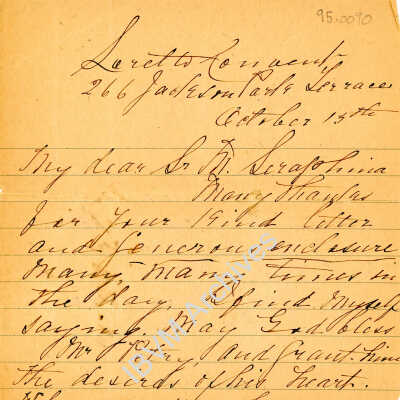 95.0090
Loretto Convent
266 Jackson Park Terrace
October 15th
My dear Sr M. Seraphina
Many thanks
for your kind letter
and generous enclosure
many, many times in
the day, I find myself
saying. May God bless
Mr and grant him
the desires of his heart.
IBVM Archives